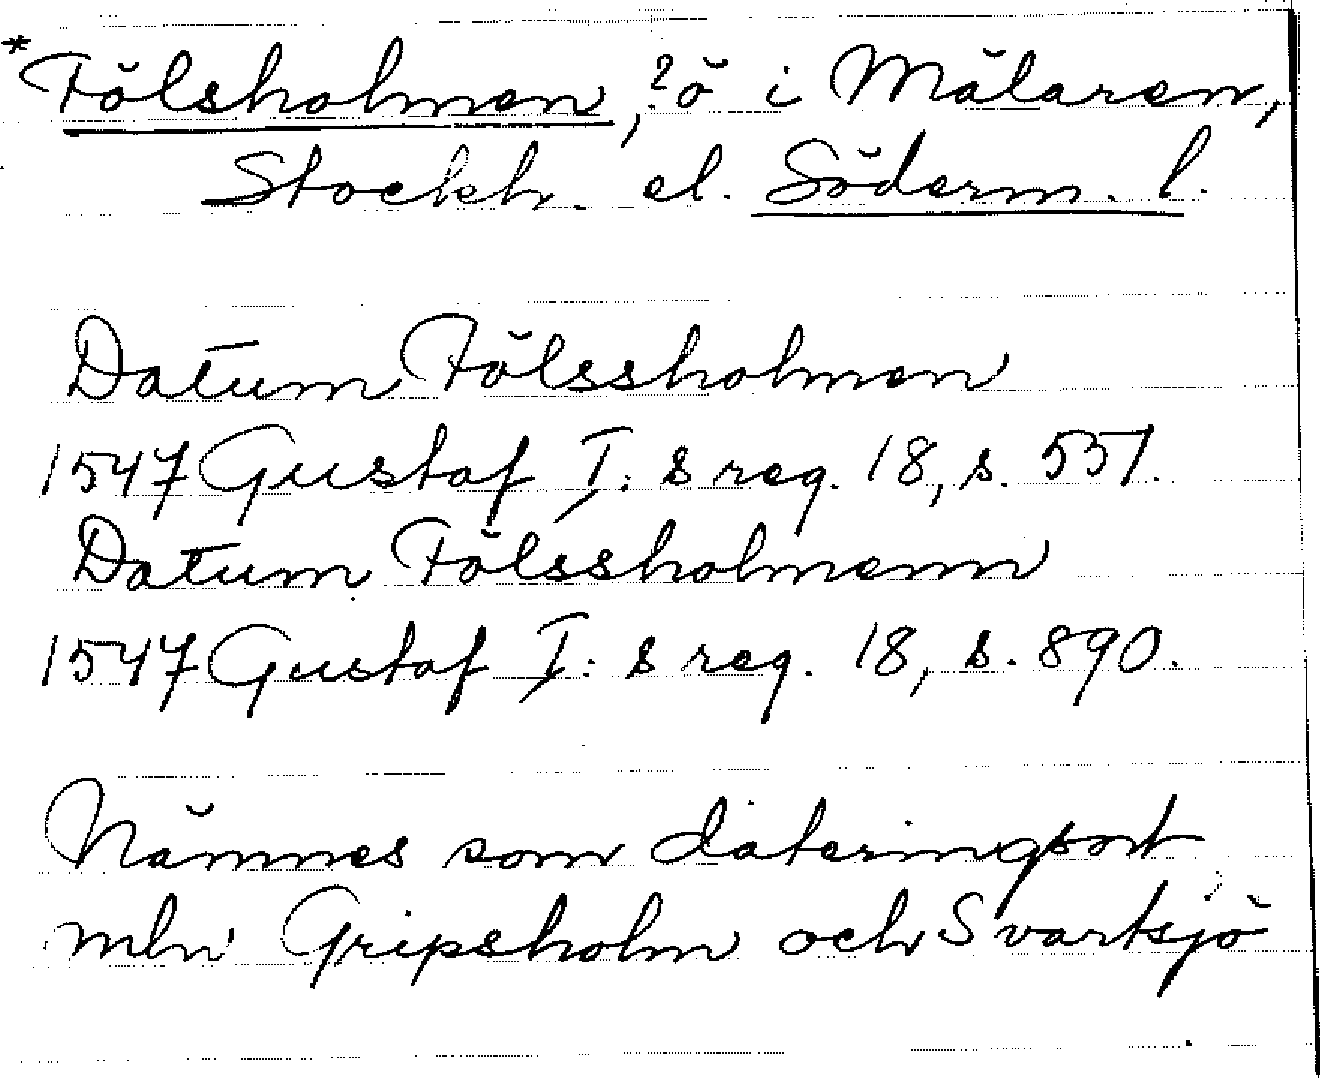 *Fölsholmen, ? ö i Mälaren,
Stockh. el. Söderm. l.
Datum Fölssholmen
1547 Gustaf I:s reg. 18, s. 537.
Datum Fölssholmenn
1547 Gustaf I:s reg. 18, s. 890.
Nämnes som dateringsort
mln Gripsholm och Svartsjö